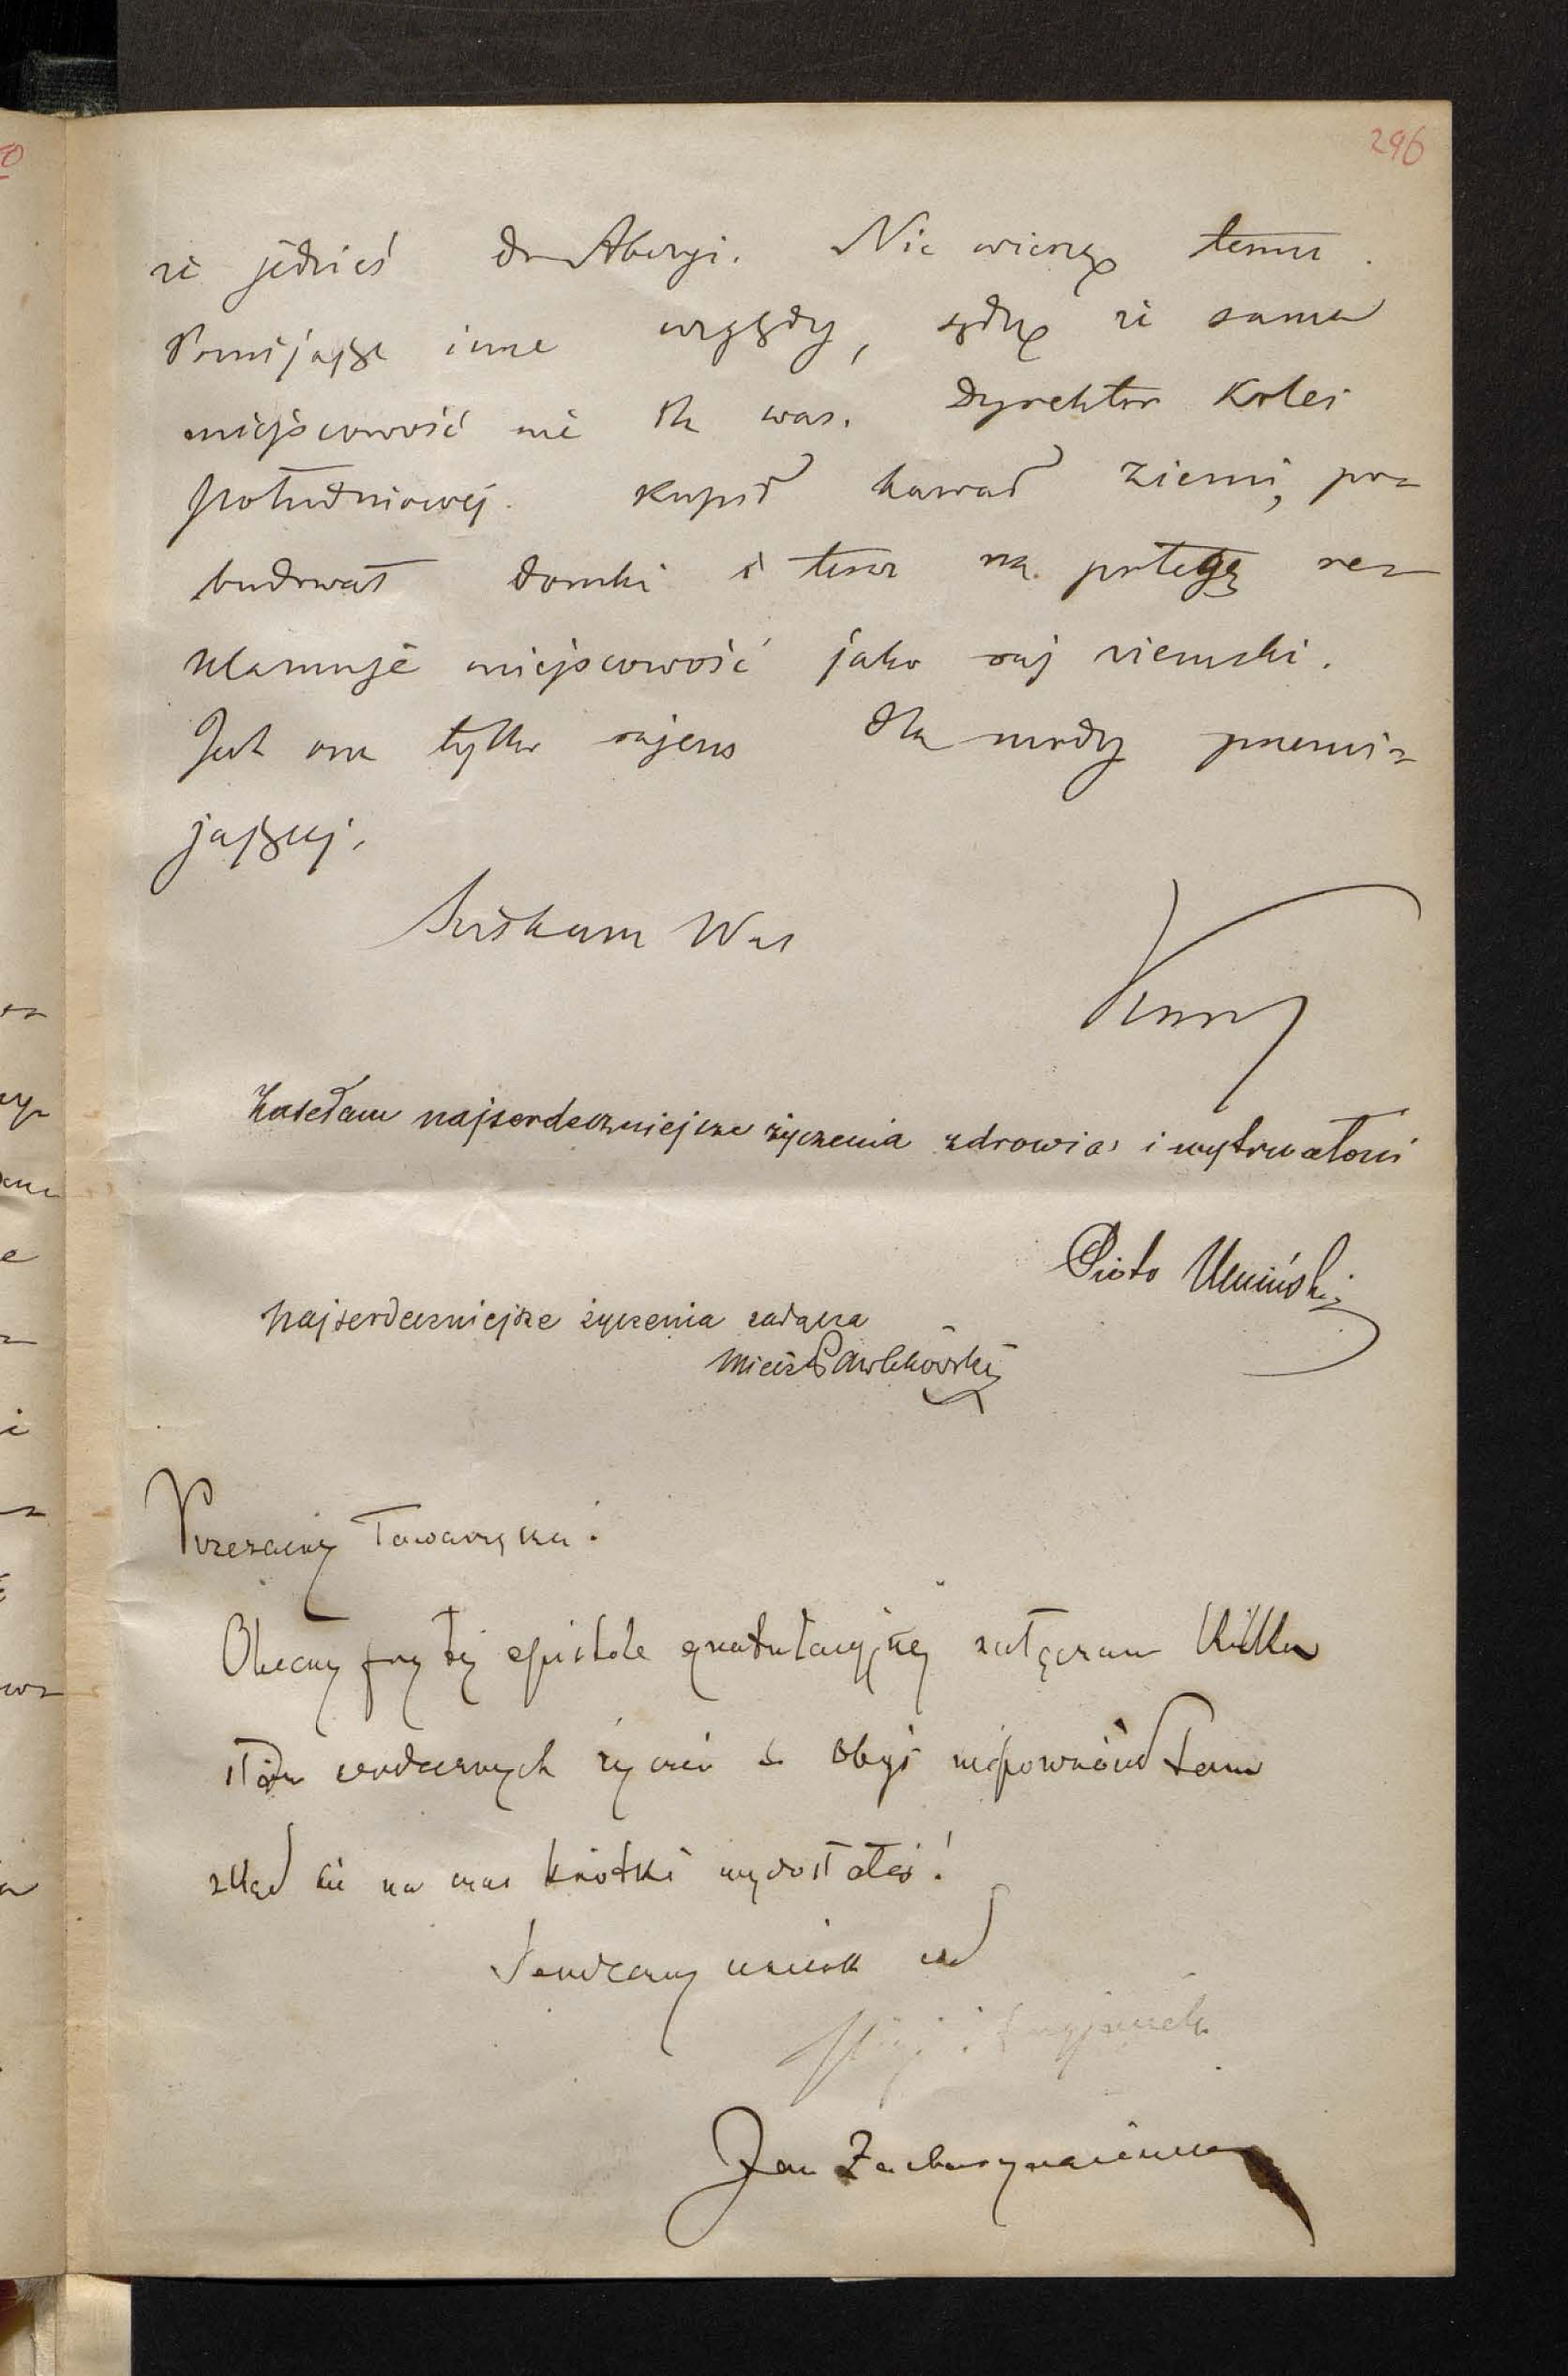 296
że jedzieś do Abazyi. Nie wierzę temu.
Pomijając inne względy, sądzę że sama
miejscowość nie dla was. Dyrektor Kolei
południowej kupił kawał ziemi, po=
budował domki i teraz na potęgę re=
klamuje miejscowość jako raj ziemski.
Jest ona tylko rajem dla mody przemi=
jającej.
Ściskam Was
Zasełam najserdeczniejsze życzenia zdrowia i wytrwałości
Piotr Umiński
Najserdeczniejsze życzenia załącza
Miecz Pawlikowski
Przezacny Towarzyszu!
Obecny przy tej epistole gratulacyjnej załączam kilka
słów serdecznych życzeń
zkąd się na czas krótki wydostałeś!
Serdeczny uścisk od
Jan Zacharyasiewicz